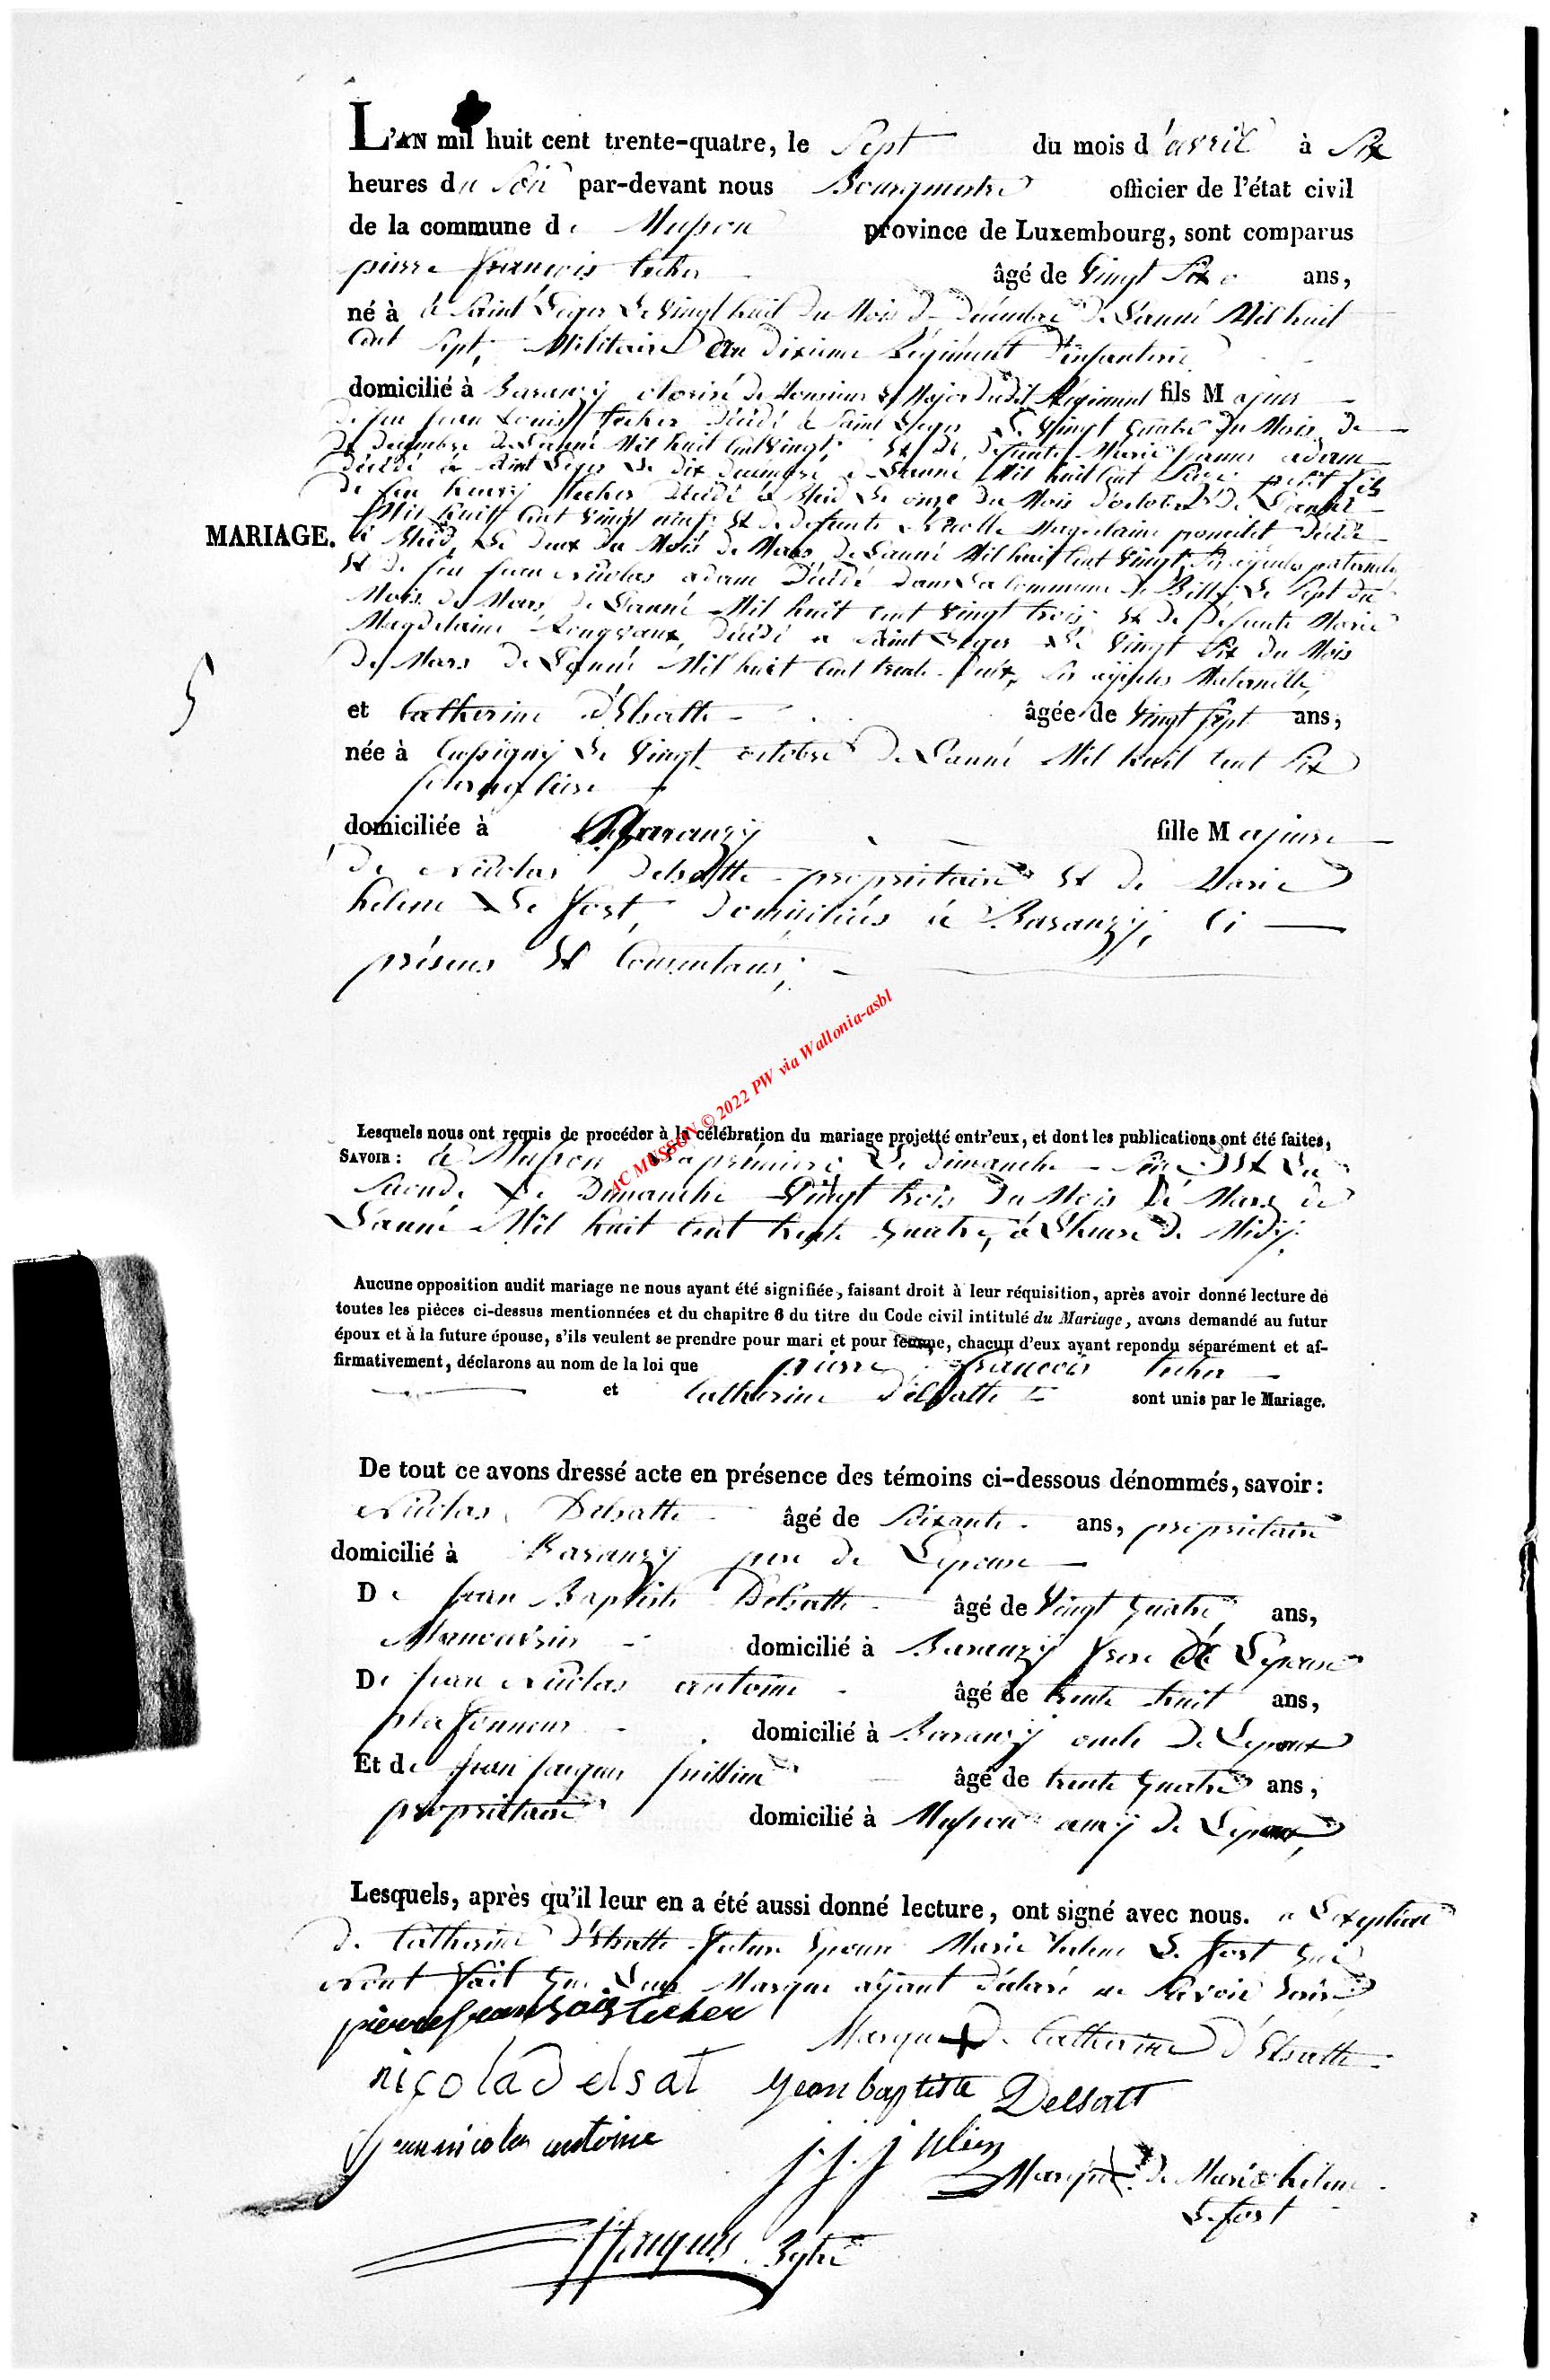 L'AN mil huit cent trente-quatre, le Sept du mois d'avril à Six
heures du Soir par-devant nous Bourgmestre officier de l'état civil
de la commune de Musson province de Luxembourg, sont comparus
pierre françois techer âgé de Vingt Six ans,
né à à Saint Leger Le Vingt huit du Mois de décembre de Lanné Mil huit
Cent Sept, Militaire au dixieme Régiment d'infanterie
domicilié à Baranzy de Monsieur Le Major dudit Régiment fils Majeur
de feu jean Louis techer décidé à Saint Leger Le Vingt quatre du Mois de
de décembre de Lanné Mil huit Cent Vingt, et de défunte Marie jeanne adam
décidé à Saint Leger Le dix décembre de Lanné Mil huit Cent petit fils
de feu henry techer décidé à Le onze du Mois d'octobre de Lanné
MARIAGE.
Mil huit Cent Vingt neuf, et de defunte Magdelaine décidé
à Le deux du Mois de Mars de Lanné Mil huit Cent Vingt paternels
et de feu jean nicolas adam décidé dans La Commune de Le Sept du
Mois de Mars de Lanné Mil huit cent Vingt trois, et de défunte Marie
Magdelaine décidé à Saint Leger Le Vingt Six du Mois
de Mars de Lanné Mil huit Cent trente deux, Ses Maternelle,
5
et Catherine d'Elsatte âgée de Vingt Sept ans,
née à Cussigny Le Vingt octobre de Lanné Mil huit cent Six
domiciliée à Baranzy fille Majeure
de Nicolas Delsatte propriétaire et de Marie
helene Le fort, domiciliés à Baranzy, Ci
présens et Consentans;
AC MUSSON © 2022 PW via Wallonia-asbl
Lesquels nous ont requis de procéder à la célébration du mariage projetté entr'eux, et dont les publications ont été faites,
SAVOIR : à Musson La première Le dimanche et La
Seconde Le Dimanche Vingt trois du Mois de Mars de
Lanné Mil huit Cent trente quatre, à L'heure de Midy.
Aucune opposition audit mariage ne nous ayant été signifiée, faisant droit à leur réquisition, après avoir donné lecture de
toutes les pièces ci-dessus mentionnées et du chapitre 6 du titre du Code civil intitulé du Mariage, avons demandé au futur
époux et à la future épouse, s'ils veulent se prendre pour mari et pour femme, chacun d'eux ayant repondu séparément et af-
firmativement, déclarons au nom de la loi que pierre françois techer
et Catherine d'elsatte sont unis par le Mariage.
De tout ce avons dressé acte en présence des témoins ci-dessous dénommés, savoir :
Nicolas Delsatte âgé de Soixante ans, propriétaire
domicilié à Baranzy pere de Lepouse
De jean Baptiste Delsatte âgé de Vingt quatre ans,
Manouvrier domicilié à Baranzy frere de Lepouse
De jean Nicolas antoine âgé de trente huit ans,
plafonneur domicilié à Baranzy oncle de Lepoux
Et de jean jacques âgé de trente quatre ans,
propriétaire domicilié à Musson amy de Lepoux,
Lesquels, après qu'il leur en a été aussi donné lecture, ont signé avec nous. a Lexeption
de Catherine d'Elsatte future Epouse Marie helene Le fort qui
nont fait que Leur Marque ayant déclaré ne Savoir
pierre fransois techer
Marque de Catherine d'Elsatte
nicola Delsat jean baptiste Delsatt
jean nicolas antoine J. J. julien
Marque de Marie helene
Le fort
Jacques Bgtre